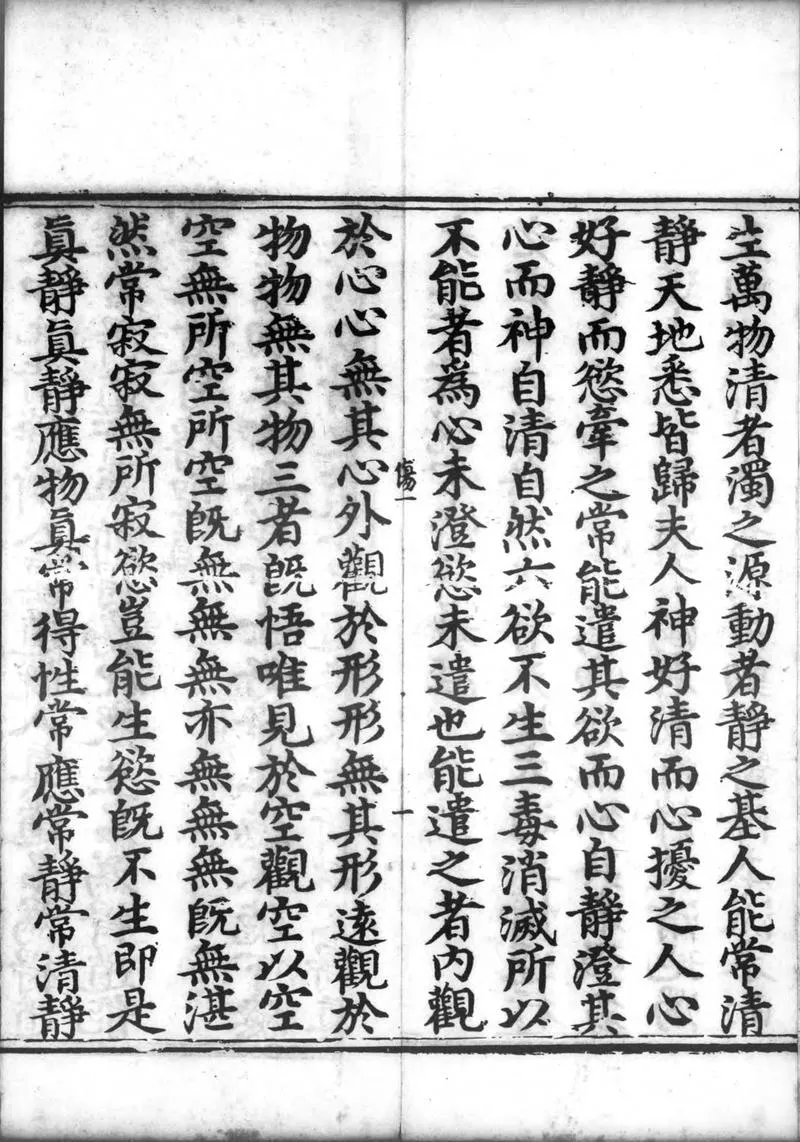 生萬物清者濁之源動者靜之基人能常清
靜天地悉皆歸夫人神好清而心擾之人心
好靜而慾牽之常能遣其欲而心自靜澄其
心而神自清自然六欲不生三毒消滅所以
不能者爲心未澄慾未遣也能遣之者內觀
傷一
一
於心心無其心外觀於形形無其形遠觀於
物物無其物三者旣悟唯見於空觀空以空
空無所空所空旣無無無亦無無無旣無湛
然常寂寂無所寂慾豈能生慾旣不生即是
眞靜眞靜應物眞常得性常應常靜常清靜